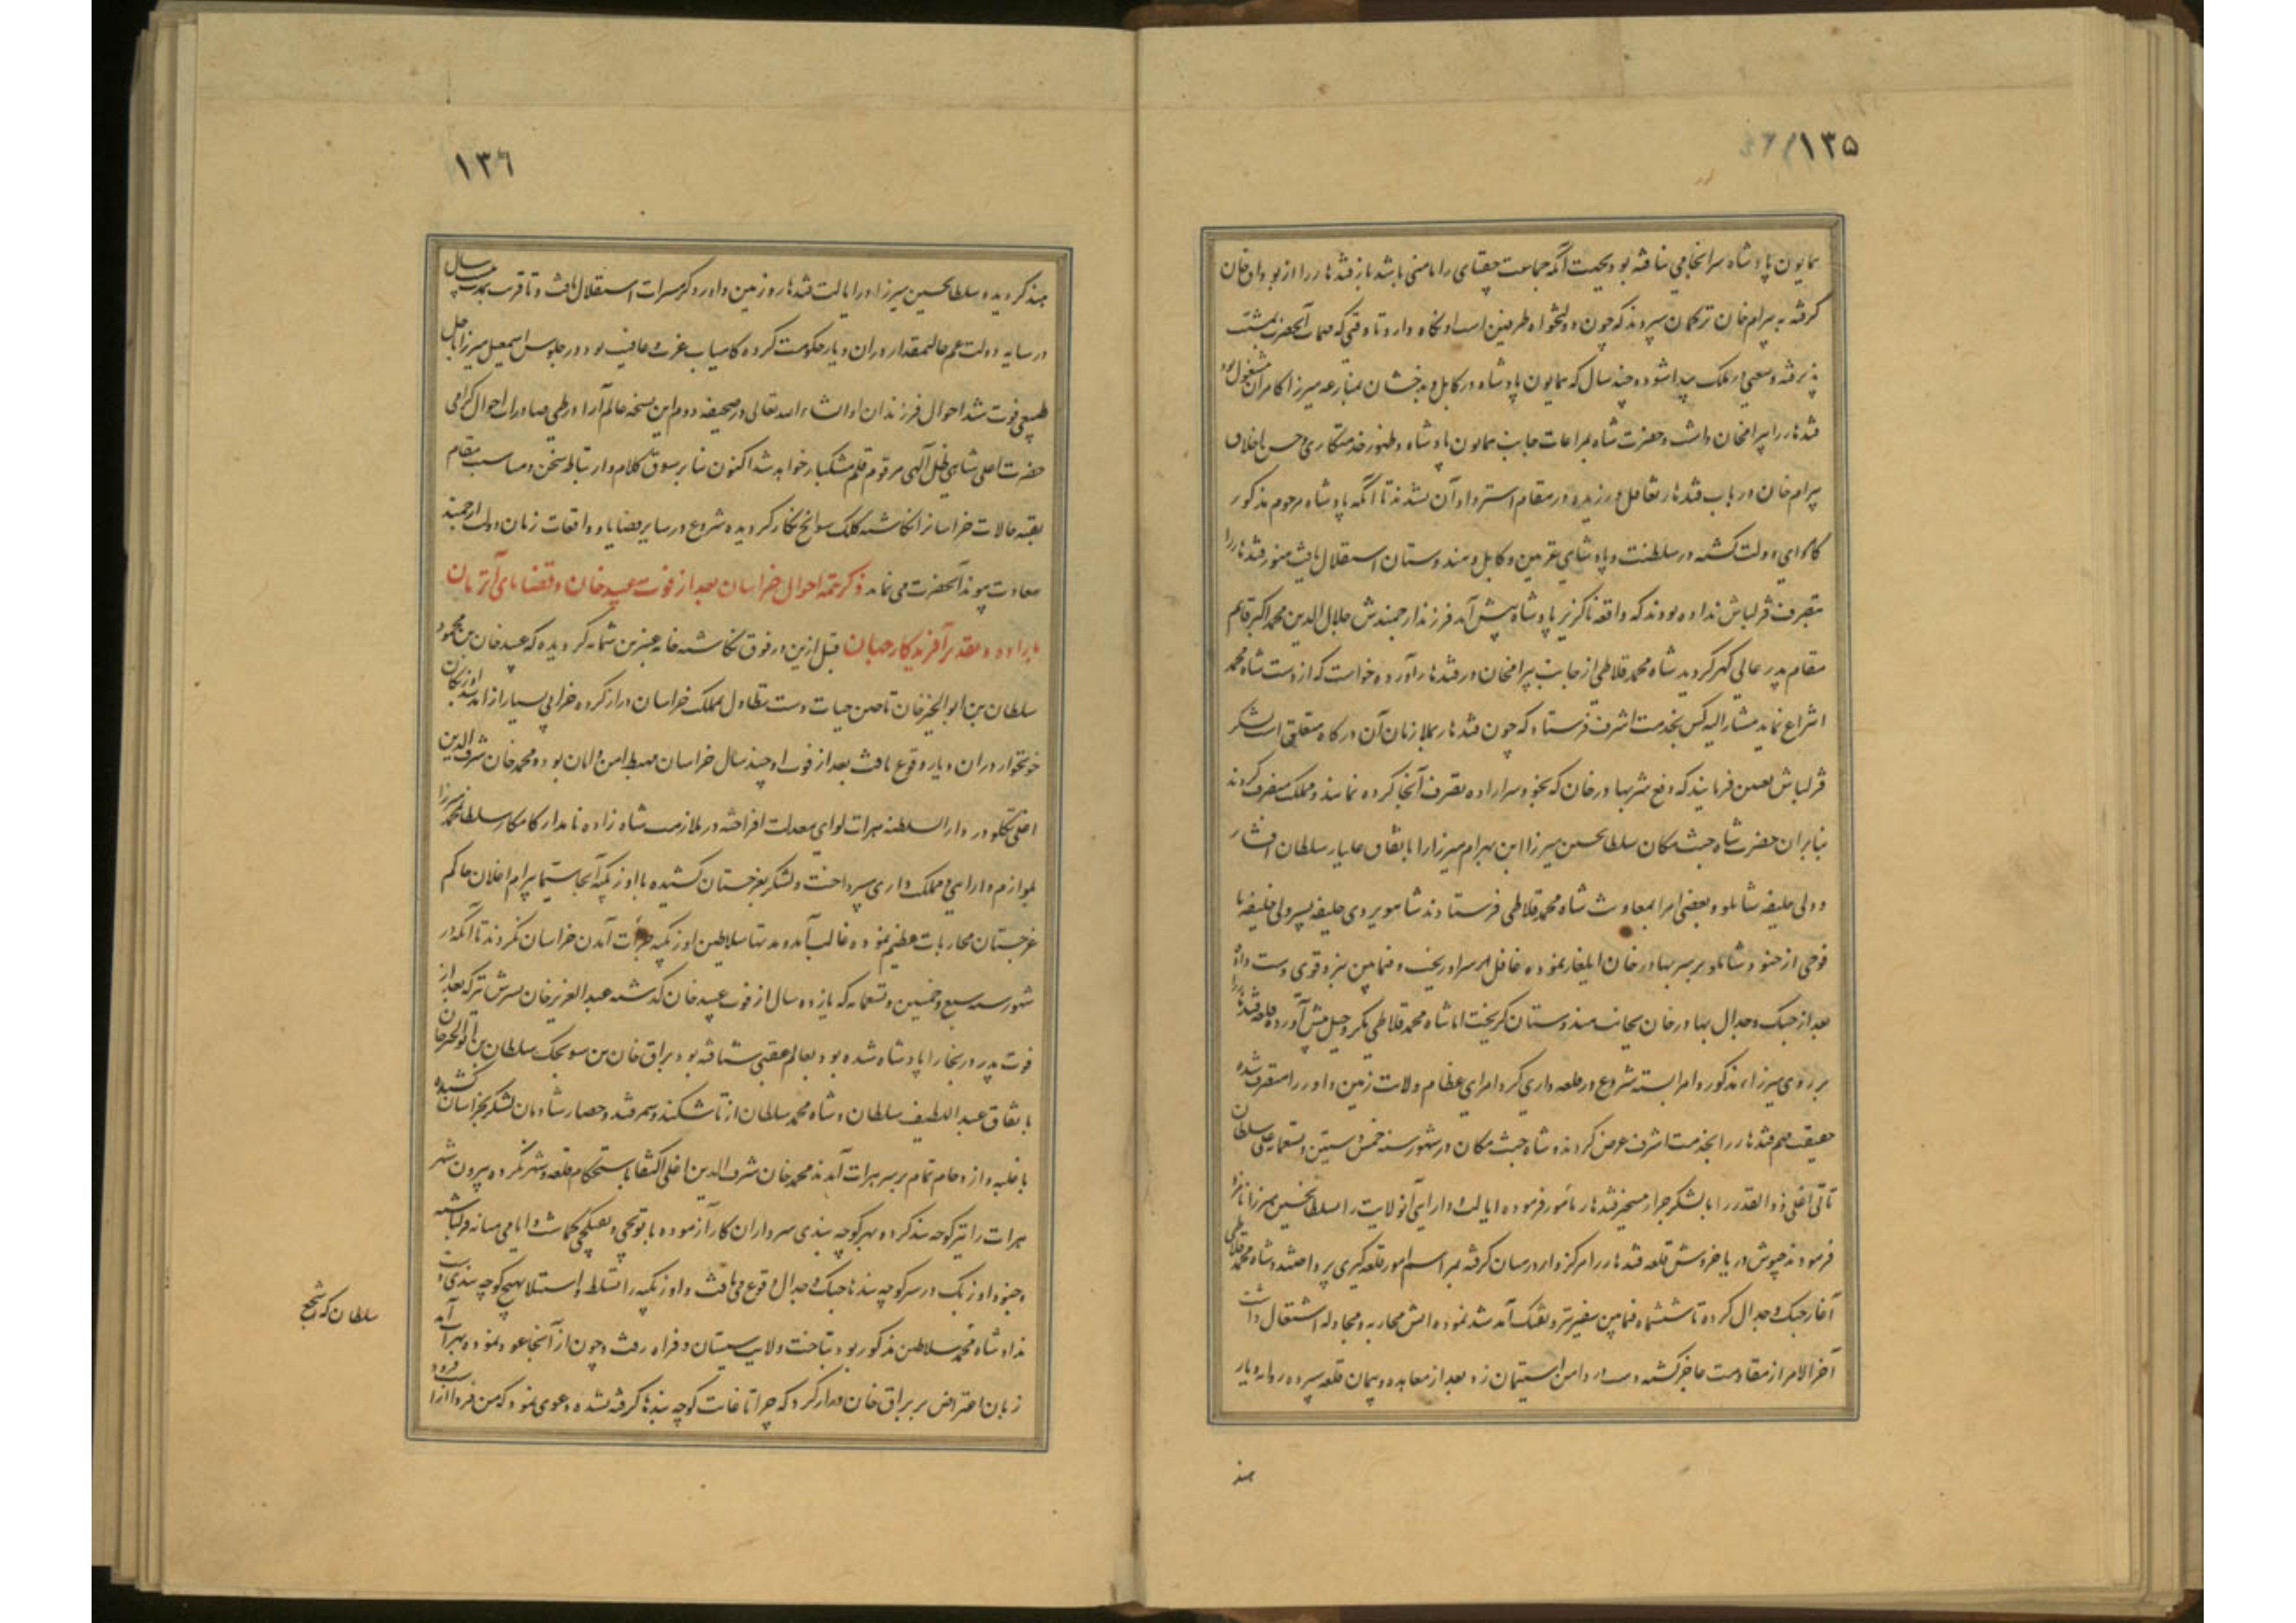 ۱۳۵
همایون پادشاه سرانجامی نیافته بود بجهت آنکه جماعت چغتای را مامنی باشد باز قندهار را از بوداق خان
گرفته به بیرام خان ترکمان سپردند که چون دولتخواه طرفین است او نگاه دارد تا وقتی که مهمات آنحضرت تمشیت
پذیرفته وسعتی در ملک پیدا شود و چند سال که همایون پادشاه در کابل و بدخشان بمنازعه میرزا کامران مشغول بود
قندهار را بیرامخان داشت و حضرت شاه بمراعات جانب همایون پادشاه و ظهور خدمتکاری و حسن اخلاص
بیرام خان در باب قندهار تغافل ورزیده در مقام استرداد آن نشدند تا آنکه پادشاه مرحوم مذکور
کامروای دولت گشته در سلطنت و پادشاهی غزنین و کابل و هندوستان استقلال یافت هنوز قندهار را
بتصرف قزلباش نداده بودند که واقعه ناگزیر پادشاه پیش آمد فرزند ارجمندش جلال الدین محمد اکبر قایم
مقام پدر عالی گهر گردید شاه محمد قلاطی از جانب بیرامخان در قندهار آورده خواست که از دست شاه محمد
انتزاع نماید مشارالیه کس بخدمت اشرف فرستاد که چون قندهار بملازمان آن درگاه متعلق است لشکر
قزلباش تعیین فرمایند که دفع شر بهادر خان که بخودسر اراده تصرف آنجا کرده نمایند و مملک متصرف گردند
بنابران حضرت شاه جنت مکان سلطان حسین میرزا ابن بهرام میرزا را باتفاق علیار سلطان افشار
و ولی خلیفه شاملو و بعضی امرا بمعاونت شاه محمد قلاطی فرستادند شاهویردی خلیفه پسر ولی خلیفه با
فوجی از جنود شاملو بر سر بهادر خان ایلغار نموده غافل بر سر او ریخت و فیمابین ستیز قوی دست داد
بعد از جنگ و جدال بهادر خان بجانب هندوستان گریخت اما شاه محمد قلاطی مکر و حیل پیش آورده قلعه قندهار را
بر روی میرزاء مذکور و امرا بسته شروع در قلعه داری کرد امرای عظام ولایت زمین داور را متصرف شده
حقیقت مهم قندهار را بخدمت اشرف عرض کردند و شاه جنت مکان در شهور سنه خمس و ستین و تسعمایه علی سلطان
تاتی اغلی ذوالقدر را با لشکر جرار بتسخیر قندهار مأمور فرموده ایالت و دارایی آنولایت را بسلطان حسین میرزا نامزد
فرمودند جیوش دریا خروش قلعه قندهار را مرکزوار در میان گرفته بمراسم امور قلعه گیری پرداختند و شاه محمد قلاطی
آغاز جنگ و جدال کرده تا ششماه فیمابین سفیر تیر و تفنگ آمد شد نموده آتش محاربه و مجادله اشتعال داشت
آخرالامر از مقاومت عاجز گشته دست در دامن استیمان زد بعد از معاهده و پیمان قلعه سپرده روانه دیار
هند
۱۳۶
هند گردید و سلطان حسین میرزا در ایالت قندهار و زمین داور و گرمسیرات استقلال یافت و تا قریب بیست سال
در سایه دولت عم عالیمقدار در ان دیار حکومت کرده کامیاب عزت و عافیت بود و در جلوس اسمعیل میرزا باجل
طبیعی فوت شد احوال فرزندان او انشاء الله تعالی در صحیفه دوم این نسخه عالم آرا در طی صادرات احوال گرامی
حضرت اعلی شاهی ظل آلهی مرقوم قلم مشکبار خواهد شد اکنون بنا بر سوق کلام و ارتباط سخن و مناسبت مقام
بقیه حالات خراسانرا نگاشته کلک سوانح نگار گردیده شروع در سایر قضایا و واقعات زمان دولت ارجمند
سعادت پیوند آنحضرت می نماید ذکر تتمه احوال خراسان بعد از فوت عبید خان و قضایای آنزمان
باراده و تقدیر آفریدکار جهان قبل ازین در فوق نگاشته خامه عنبرین شمامه گردیده که عبید خان بن محمود
سلطان بن ابوالخیر خان تا حین حیات دست تطاول بملک خراسان دراز کرده خرابی بسیار از آمد شد اوزبکان
خونخوار در ان دیار وقوع یافت بعد از فوت او چند سال خراسان مهبط امن و امان بود و محمد خان شرف الدین
اغلی تکلو در دارالسلطنه هرات لوای معدلت افراخته در ملازمت شاه زاده نامدار کامکار سلطان محمد میرزا
بلوازم دارایی و مملک داری می پرداخت و لشکر بغرجستان کشیده با اوزبکیه آنجا سیما بیرام اغلان حاکم
غرجستان محاربات عظیم نموده غالب آمد و مدتها سلاطین اوزبکیه جرأت آمدن خراسان نکردند تا آنکه در
شهور سنه سبع و خمسین و تسعمایه که یازده سال از فوت عبید خان گذشته عبدالعزیز خان پسرش نیز که بعد از
فوت پدر در بخارا پادشاه شده بود بعالم عقبی شتافته بود براق خان بن سونجک سلطان بن ابوالخیر خان
باتفاق عبداللطیف سلطان و شاه محمد سلطان از تاشکند و سمرقند و حصار شادمان لشکر بخراسان کشیده
با غلبه و ازدحام تمام بر سر هرات آمدند محمد خان شرف الدین اغلی اکتفا باستحکام قلعه و شهر نکرده بیرون شهر
هرات را نیز کوچه بند کرد و بهر کوچه بندی سرداران کارآزموده با توپچی و تفنگچی گماشت و ایامی میانه قزلباشیه
و جنود اوزبک در سر کوچه بندها جنگ و جدال وقوع می یافت و اوزبکیه را تسلط و استیلا بهیچ کوچه بندی دست
نداد شاه محمد سلاطین مذکور بود بتاخت ولایت سیستان و فراه رفت و چون از آنجا عود نموده بهرات آمد
زبان اعتراض بر براق خان دراز کرد که چرا تا غایت کوچه بندها گرفته نشده و دعوی نمود که من فردا آنرا
سلطان که اشجع